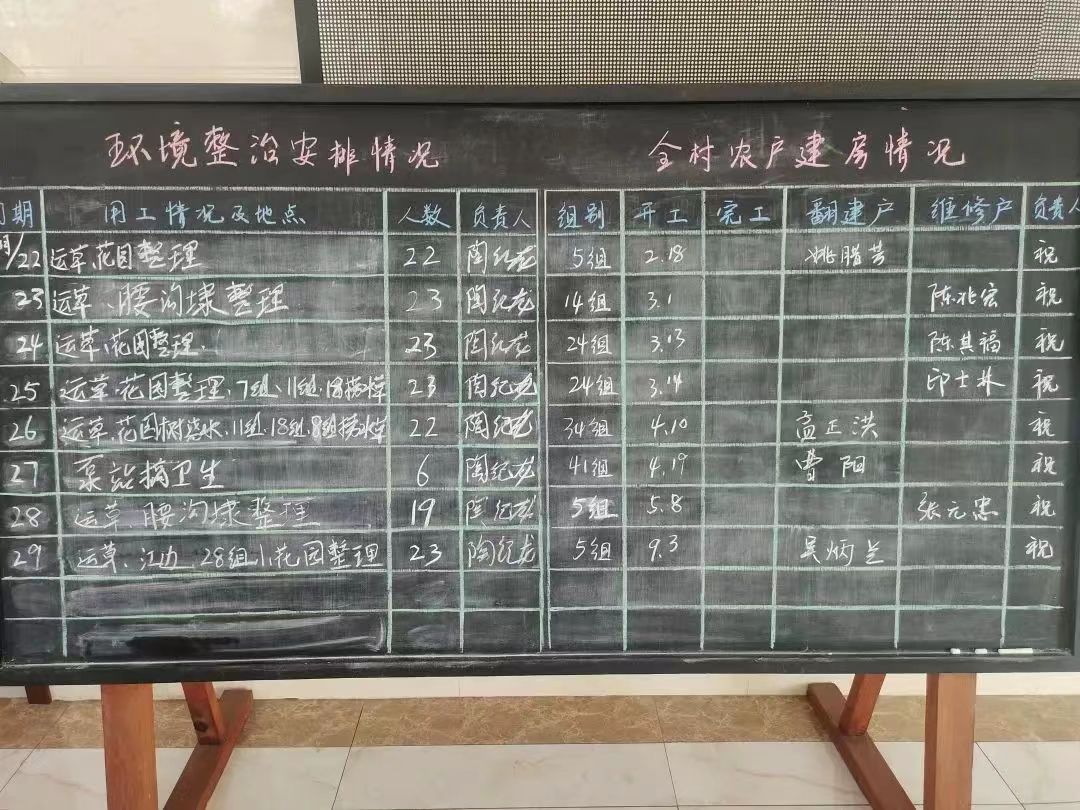 环境整治安排情况 全村农户建房情况
期 用工情况及地点 人数 负责人 组别 开工 完工 翻建户 维修户 负责人
/22 运草、花园整理 22 陶纪龙 5组 2.18 姚腊芳 祝
23 运草、腰沟埭整理 23 陶纪龙 14组 3.1 陈兆宏 祝
24 运草、花园整理. 23 陶纪龙 24组 3.13 陈其福 祝
25 运草、花园整理,7组、11组、18 23 陶纪龙 24组 3.14 印士林 祝
26 运草、花园树浇水、11组、18组、8组 22 陶纪龙 34组 4.10 孟正洪 祝
27 泵站搞卫生 6 陶纪龙 41组 4.19 曹阳 祝
28 运草、腰沟埭整理 19 陶纪龙 5组 5.8 张元忠 祝
29 运草、江边、28组小花园整理 23 陶纪龙 5组 9.3 吴炳兰 祝